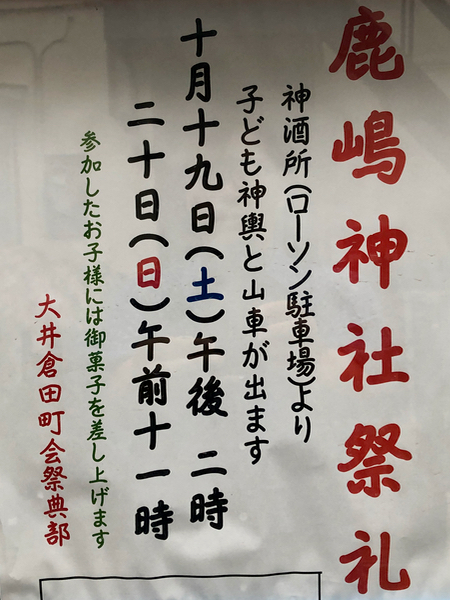 鹿嶋神社祭礼
神酒所(ローソン駐車場)より
子ども神輿と山車が出ます
十月十九日(土)午後二時
二十日(日)午前十一時
参加したお子様には御菓子を差し上げます
大井倉田町会祭典部